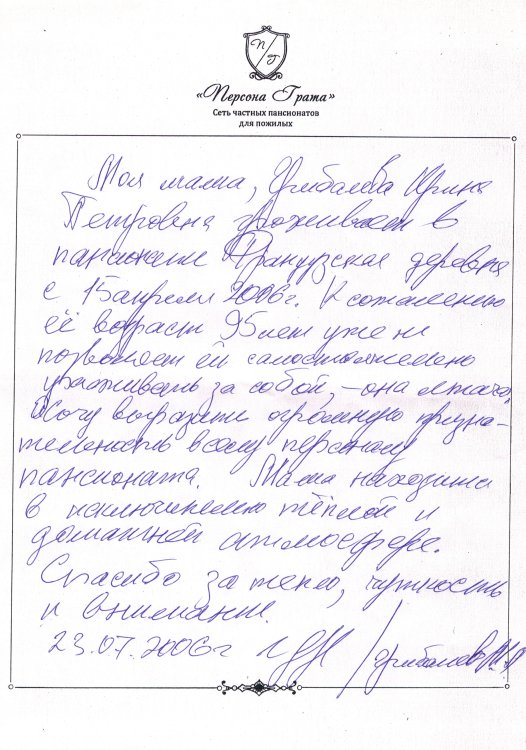 П Г
«Персона Грата»
Сеть частных пансионатов
для пожилых
Моя мама, Ирина
Петровна проживает в
пансионате Французская деревня
с 15 апреля 2006г. К сожалению
её возраст 95 лет уже не
позволяет ей самостоятельно
ухаживать за собой, – она
Хочу выразить огромную призна-
тельность всему персоналу
пансионата. Мама находится
в исключительно тёплой и
домашней атмосфере.
Спасибо за тепло, чуткость
и внимание.
23.07.2006г